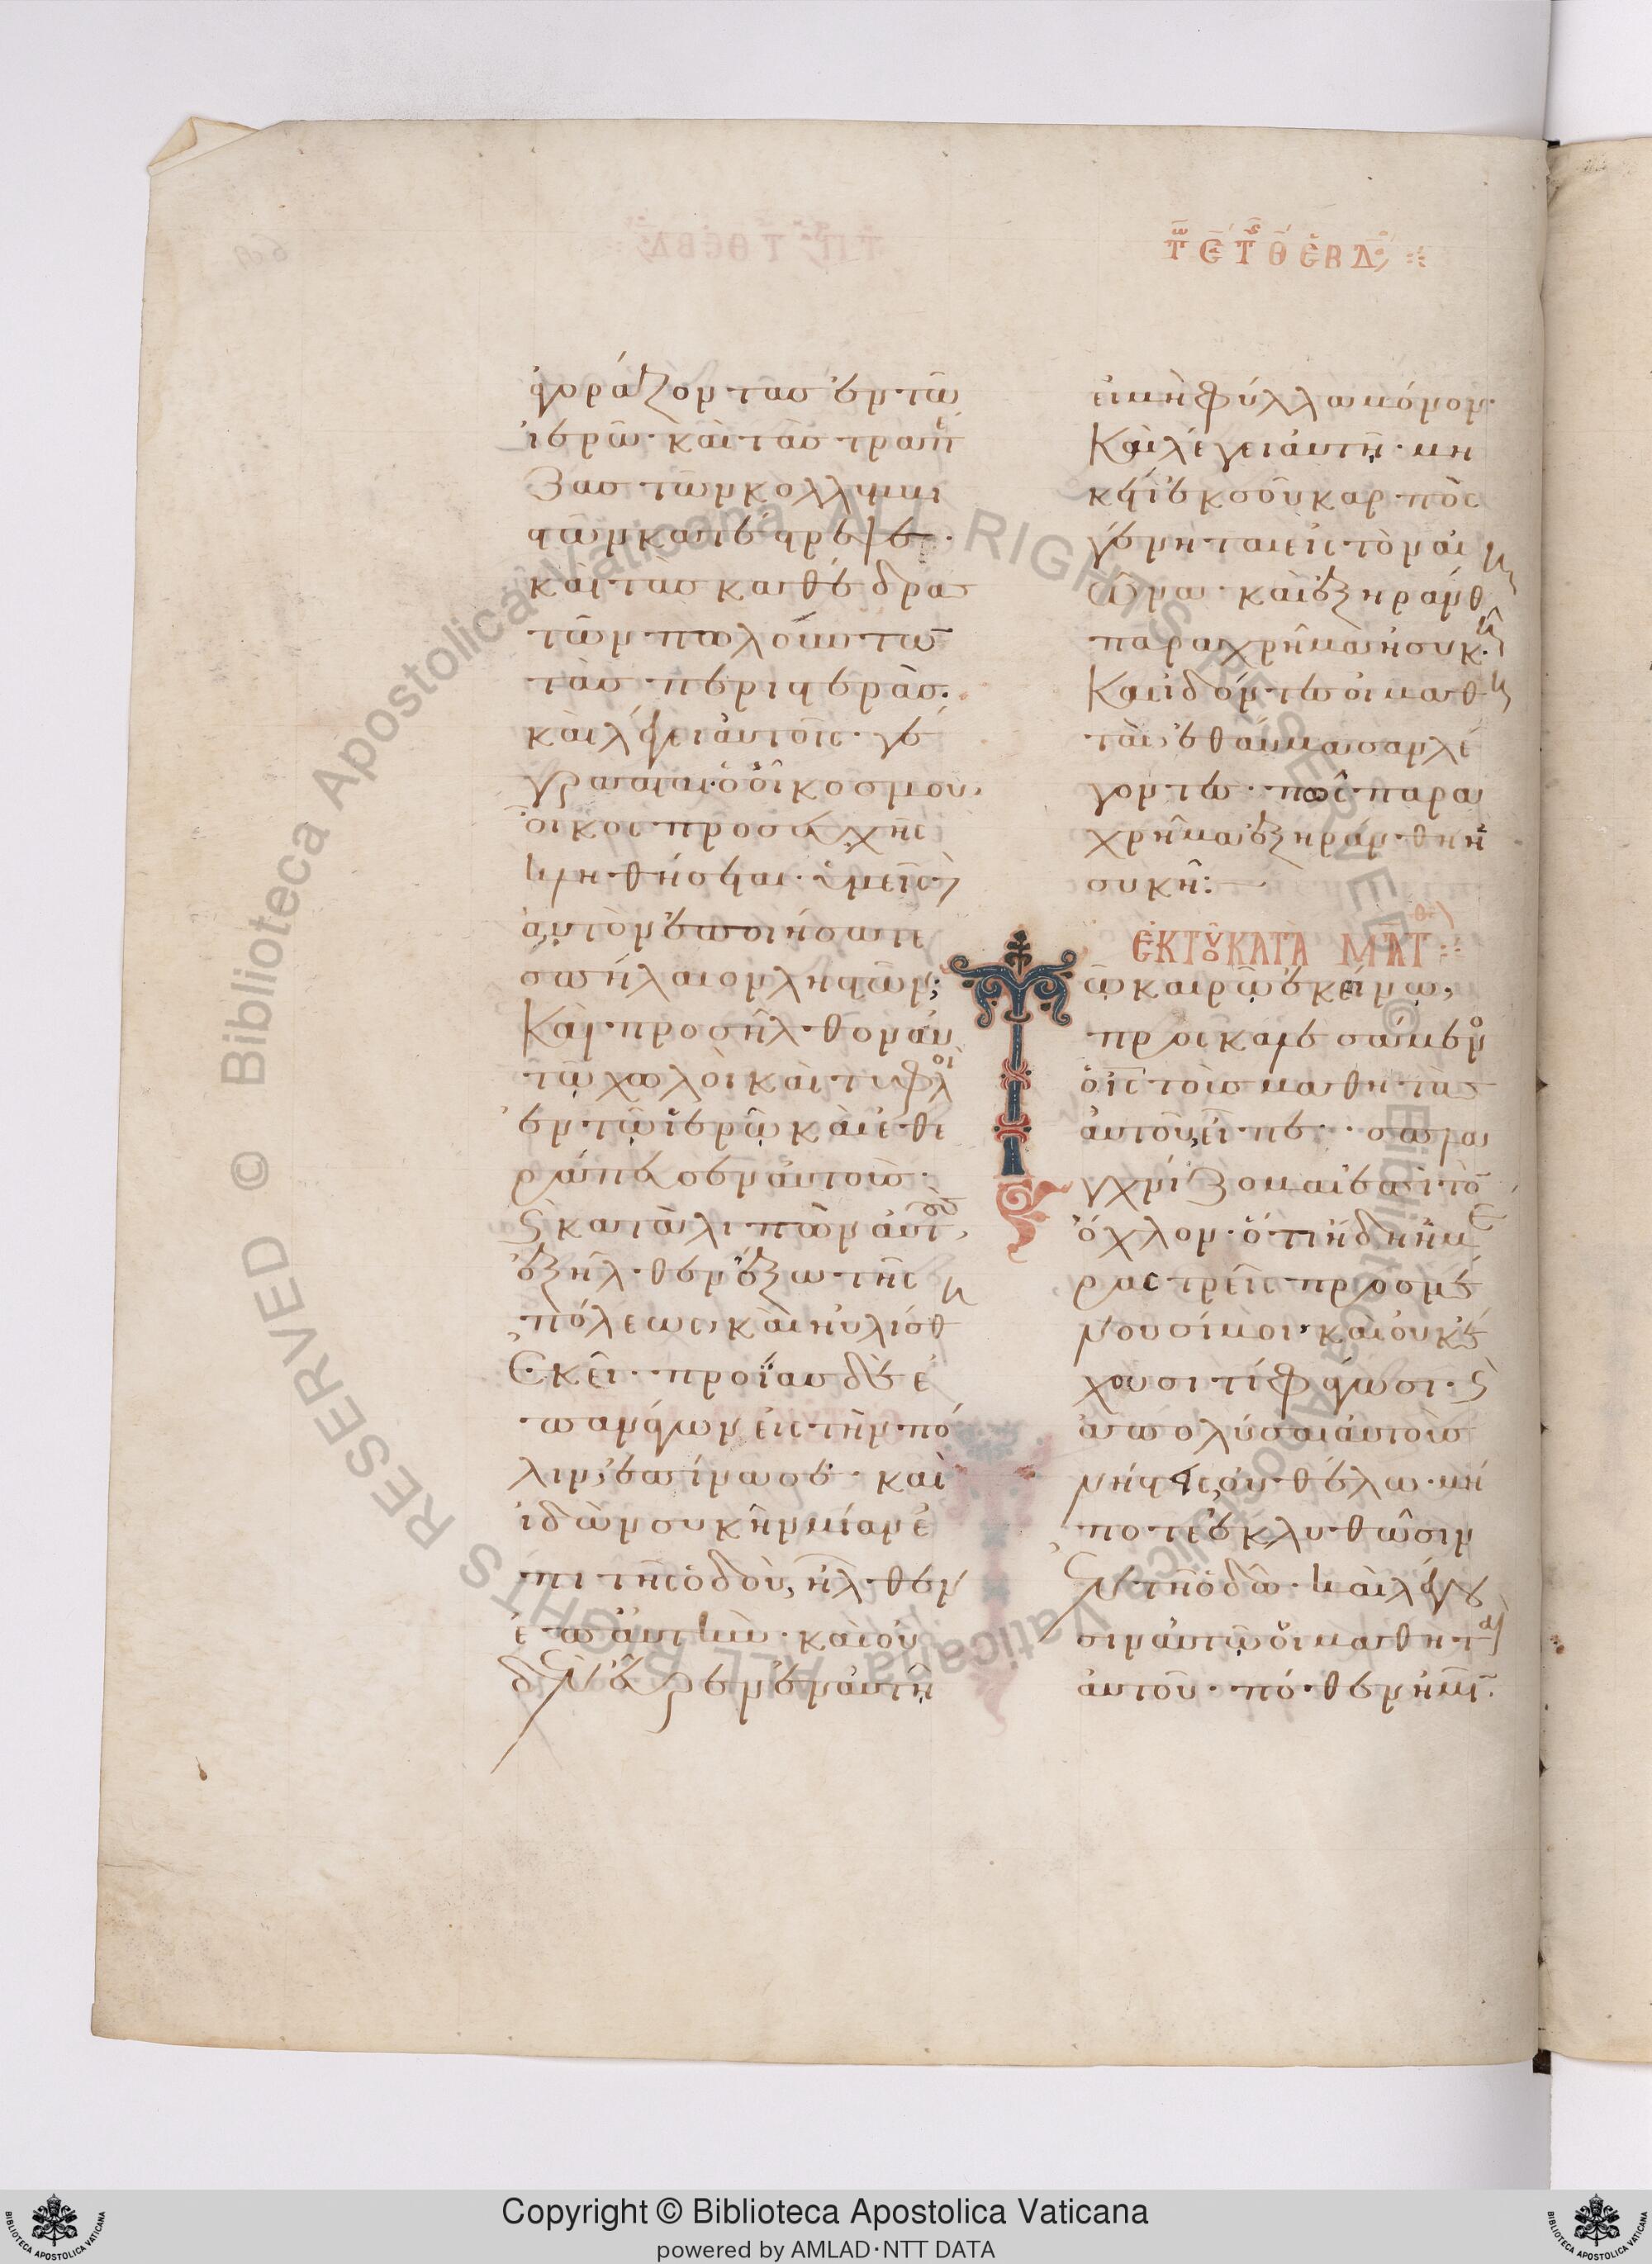 Τῷ Ϛ Τῆς Θ ἑβδ
γοράζοντας ἐν τῶ
ἱερῶ· καὶ τὰς τραπε
ζας τῶν κολλυβι
στῶν κατέστρεψε·
καὶ τὰς καθέδρας
τῶν πωλούντων
τὰς περιστεράς·
καὶ λέγει αὐτοῖς· γέ
γραπται· ὁ οἶκός μου,
οἶκος προσευχῆς
κληθήσεται· ὑμεῖς δὲ
αὐτὸν ἐποιήσατε
σπήλαιον ληστῶν;
Καὶ προσῆλθον αὐ
τῷ χωλοὶ καὶ τυφλοὶ
ἐν τῷ ἱερῷ καὶ ἐθε
ράπευσεν αὐτούς·
Ϛ καταλιπὼν αὐτοὺς,
ἐξῆλθεν ἔξω τῆς
πόλεως, καὶ ηὐλίσθη
ἐκεῖ· πρωΐας δὲ ἐ
παναγων εἰς τὴν πό
λιν, ἐπείνασε· καὶ
ἰδὼν συκῆν μίαν ἐ
πὶ τῆς ὁδοῦ, ἦλθεν
ἐπ αὐτὴν· καὶ οὐ
δὲν εὗρεν ἐν αὐτῇ
εἰ μὴ φύλλα μόνον·
Καὶ λέγει αὐτῇ· μη
κέτι ἐκ σοῦ καρπὸς
γένηται εἰς τὸν αἰ
ῶνα· καὶ ἐξηράνθη
παραχρῆμα ἡ συκῆ·
Καὶ ἰδόντες οἱ μαθη
ταὶ ἐθαύμασαν λέ
γοντες· πῶς παρα
χρῆμα ἐξηράνθη ἡ
συκῆ:
ἘΚ ΤΟΥ ΚΑΤΑ ΜΑΤΘ
Τῷ καιρῷ ἐκείνῳ,
προσκαλεσάμενος
ὁ ΙΣ τοὺς μαθητὰς
αὐτοῦ, εἶπε· σπλα
γχνίζομαι ἐπὶ τὸν
ὄχλον· ὅτι ἤδη ἡμέ
ρας τρεῖς προσμέ
νουσί μοι· καὶ οὐκ ἔ
χουσι τί φάγωσι· Ϛ
ἀπολῦσαι αὐτοὺς
νήστεις οὐ θέλω· μή
ποτε ἐκλυθῶσιν
ἐν τῇ ὁδῷ· καὶ λέγου
σιν αὐτῷ οἱ μαθηταὶ
αὐτοῦ· πόθεν ἡμῖν
© Biblioteca Apostolica Vaticana ALL RIGHTS RESERVED
© Biblioteca Apostolica Vaticana ALL RIGHTS RESERVED
Copyright © Biblioteca Apostolica Vaticana
powered by AMLAD·NTT DATA
BIBLIOTECA APOSTOLICA VATICANA
BIBLIOTECA APOSTOLICA VATICANA